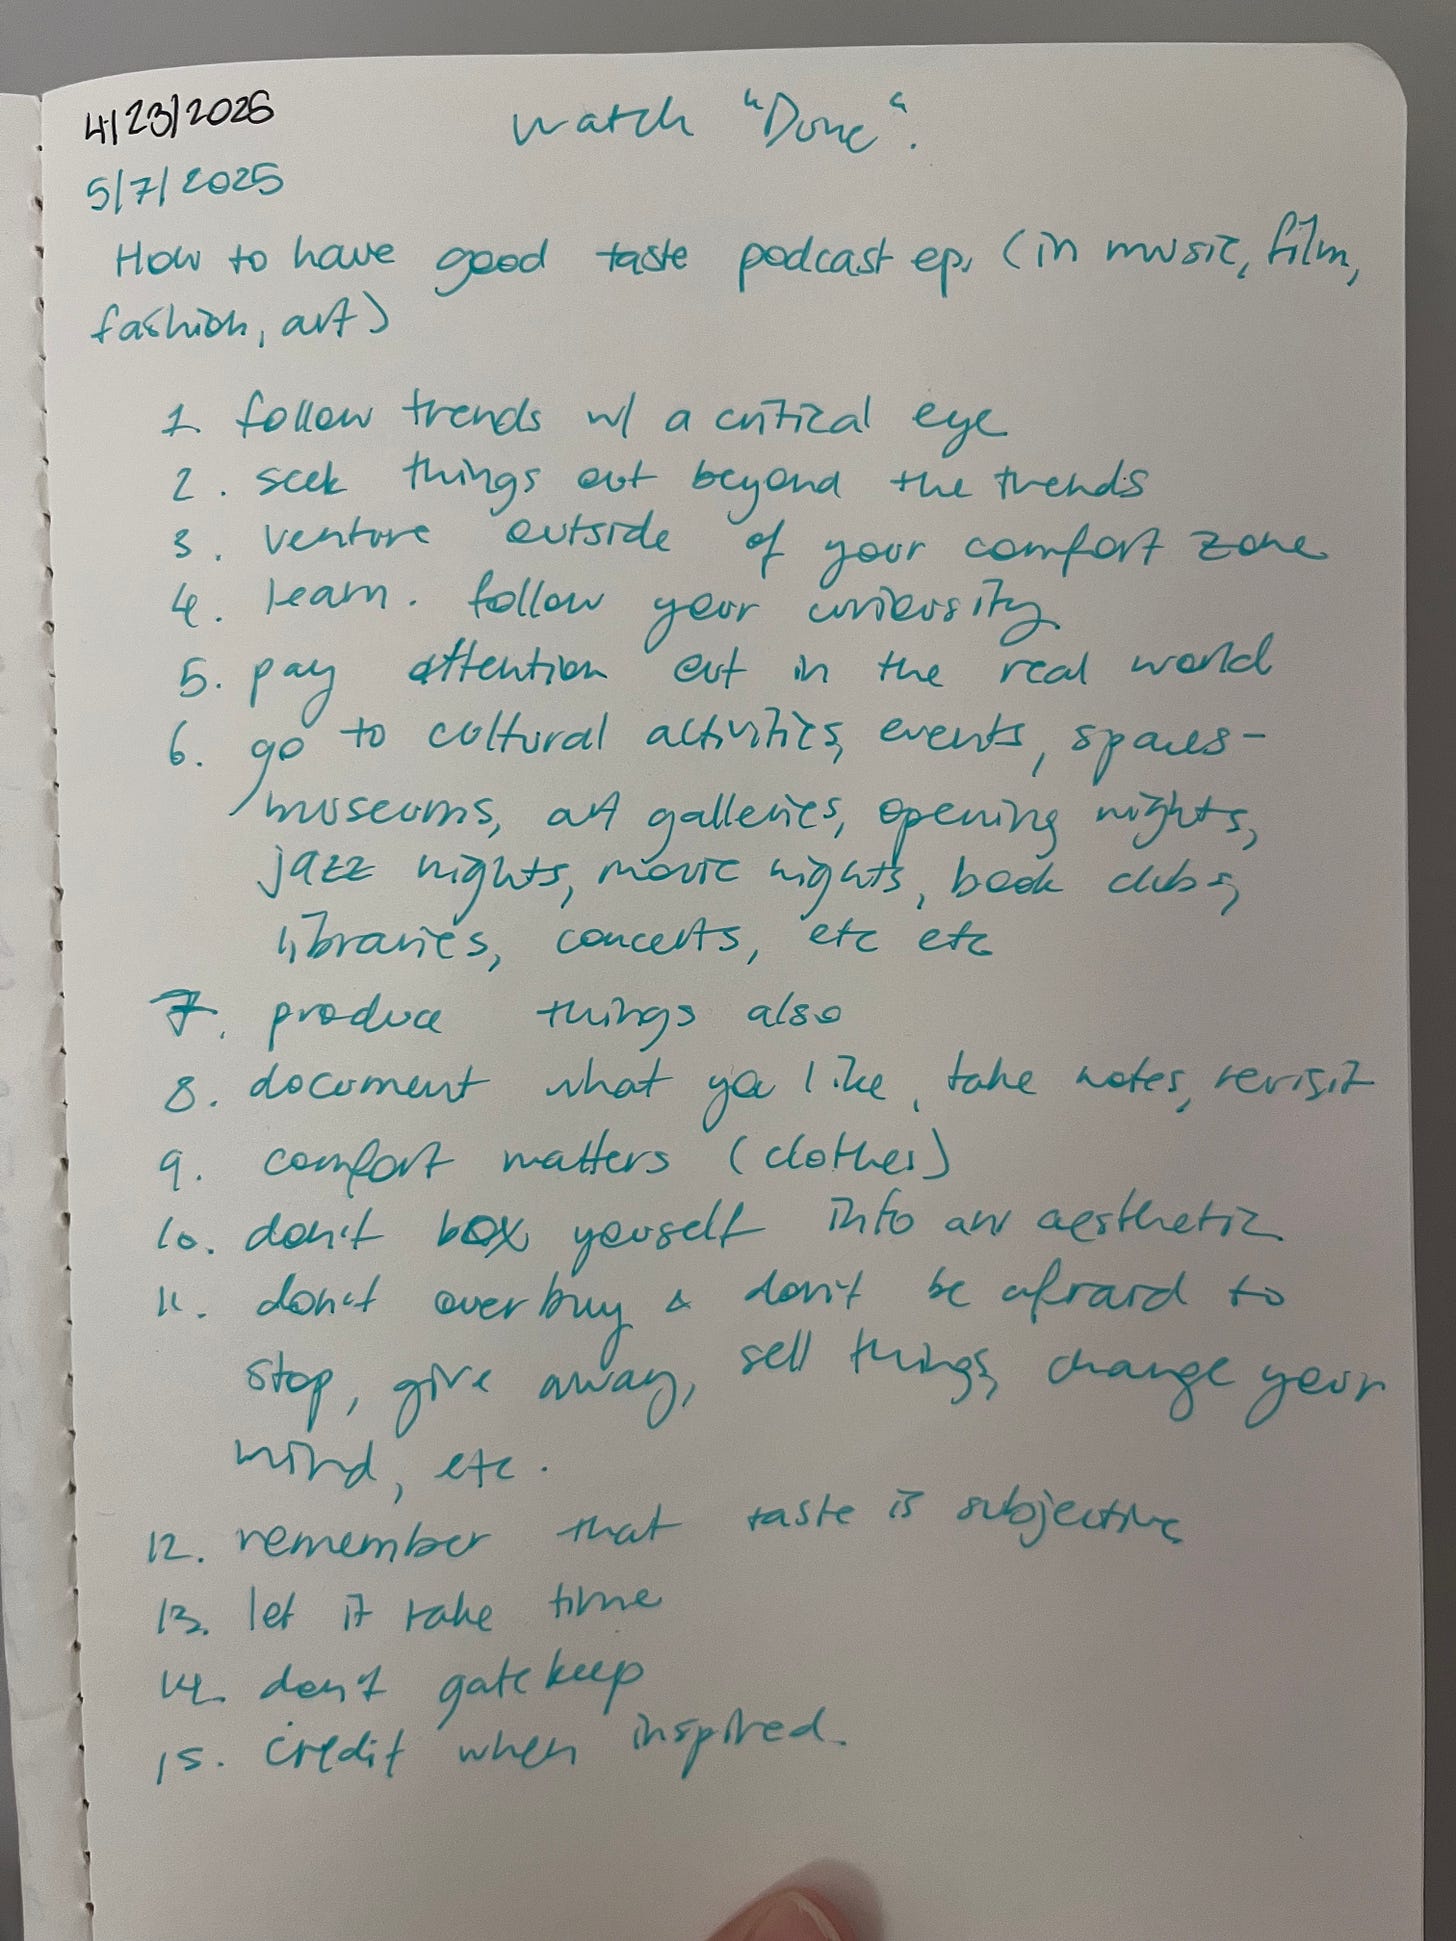 4/23/2025
watch "Dune".
5/7/2025
How to have good taste podcast ep. (in music, film,
fashion, art)
1. follow trends w/ a critical eye
2. seek things out beyond the trends
3. venture outside of your comfort zone
4. learn. follow your curiosity
5. pay attention out in the real world
6. go to cultural activities, events, spaces -
museums, art galleries, opening nights,
jazz nights, movie nights, book clubs,
libraries, concerts, etc etc
7. produce things also
8. document what you like, take notes, revisit
9. comfort matters (clothes)
10. don't box yourself into an aesthetic
11. don't overbuy & don't be afraid to
stop, give away, sell things, change your
mind, etc.
12. remember that taste is subjective
13. let it take time
14. don't gatekeep
15. credit when inspired.